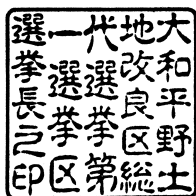 大和平野土
地改良区総
代選挙第
一選挙区
選挙長之印